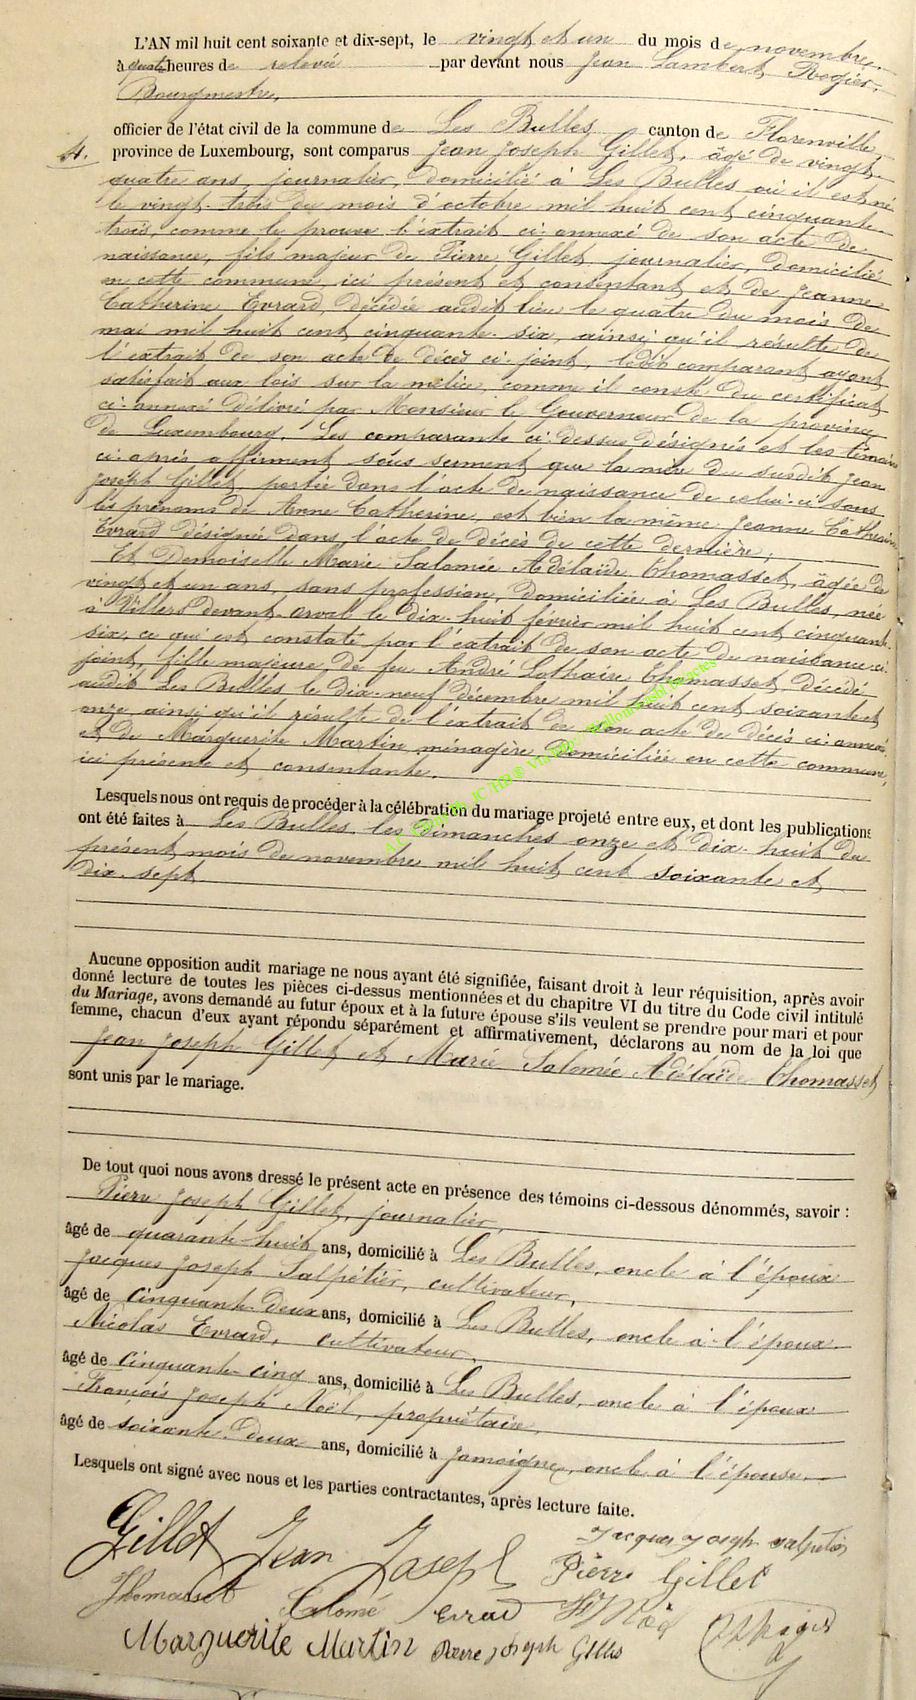 L'AN mil huit cent soixante et dix-sept, le vingt et un du mois de novembre
à quatre heures de relevée par devant nous Jean Lambert Rogier,
Bourgmestre,
officier de l'état civil de la commune de Les Bulles canton de Florenville
4. province de Luxembourg, sont comparus Jean Joseph Gillet, âgé de vingt-
quatre ans, journalier, domicilié à Les Bulles où il est né
le vingt-trois du mois d'octobre mil huit cent cinquante-
trois, comme le prouve l'extrait ci-annexé de son acte de
naissance, fils majeur de Pierre Gillet, journalier, domicilié
en cette commune, ici présent et consentant et de Jeanne
Catherine Evrard, décédée audit lieu le quatre du mois de
mai mil huit cent cinquante-six, ainsi qu'il résulte de
l'extrait de son acte de décès ci-joint, ledit comparant ayant
satisfait aux lois sur la milice, comme il conste du certificat
ci-annexé délivré par Monsieur le Gouverneur de la province
de Luxembourg. Les comparants ci-dessus désignés et les témoins
ci-après affirment sous serment que la mère du susdit Jean
Joseph Gillet, portée dans l'acte de naissance de celui-ci sous
les prénoms de Anne Catherine, est bien la même Jeanne Catherine
Evrard désignée dans l'acte de décès de cette dernière.
Et Demoiselle Marie Salomée Adélaïde Thomasset, âgée de
vingt et un ans, sans profession, domiciliée à Les Bulles, née
à Villers devant orval le dix-huit février mil huit cent cinquante-
six, ce qui est constaté par l'extrait de son acte de naissance ci-
joint, fille majeure de feu André Lothaire Thomasset, décédé
audit Les Bulles le dix-neuf décembre mil huit cent soixante et
onze ainsi qu'il résulte de l'extrait de son acte de décès ci-annexé
et de Marguerite Martin, ménagère, domiciliée en cette commune,
ici présente et consentante.
Lesquels nous ont requis de procéder à la célébration du mariage projeté entre eux, et dont les publications
ont été faites à Les Bulles, les dimanches onze et dix-huit du
présent mois de novembre mil huit cent soixante et
dix-sept
Aucune opposition audit mariage ne nous ayant été signifiée, faisant droit à leur réquisition, après avoir
donné lecture de toutes les pièces ci-dessus mentionnées et du chapitre VI du titre du Code civil intitulé
du Mariage, avons demandé au futur époux et à la future épouse s'ils veulent se prendre pour mari et pour
femme, chacun d'eux ayant répondu séparément et affirmativement, déclarons au nom de la loi que
Jean Joseph Gillet, et Marie Salomée Adélaïde Thomasset
sont unis par le mariage.
De tout quoi nous avons dressé le présent acte en présence des témoins ci-dessous dénommés, savoir :
Pierre Joseph Gillet, journalier,
âgé de quarante-huit ans, domicilié à Les Bulles, oncle à l'époux
Jacques Joseph Salpétier, cultivateur,
âgé de cinquante-deux ans, domicilié à Les Bulles, oncle à l'époux
Nicolas Evrard, cultivateur,
âgé de cinquante-cinq ans, domicilié à Les Bulles, oncle à l'époux
François Joseph Noël, propriétaire,
âgé de soixante-deux ans, domicilié à Jamoigne, oncle à l'épouse.
Lesquels ont signé avec nous et les parties contractantes, après lecture faite.
Gillet Jean Joseph Jacques Joseph Salpetier
Pierre Gillet
Thomasset Salomé Evrard Noël
Marguerite Martin Pierre Joseph Gillet